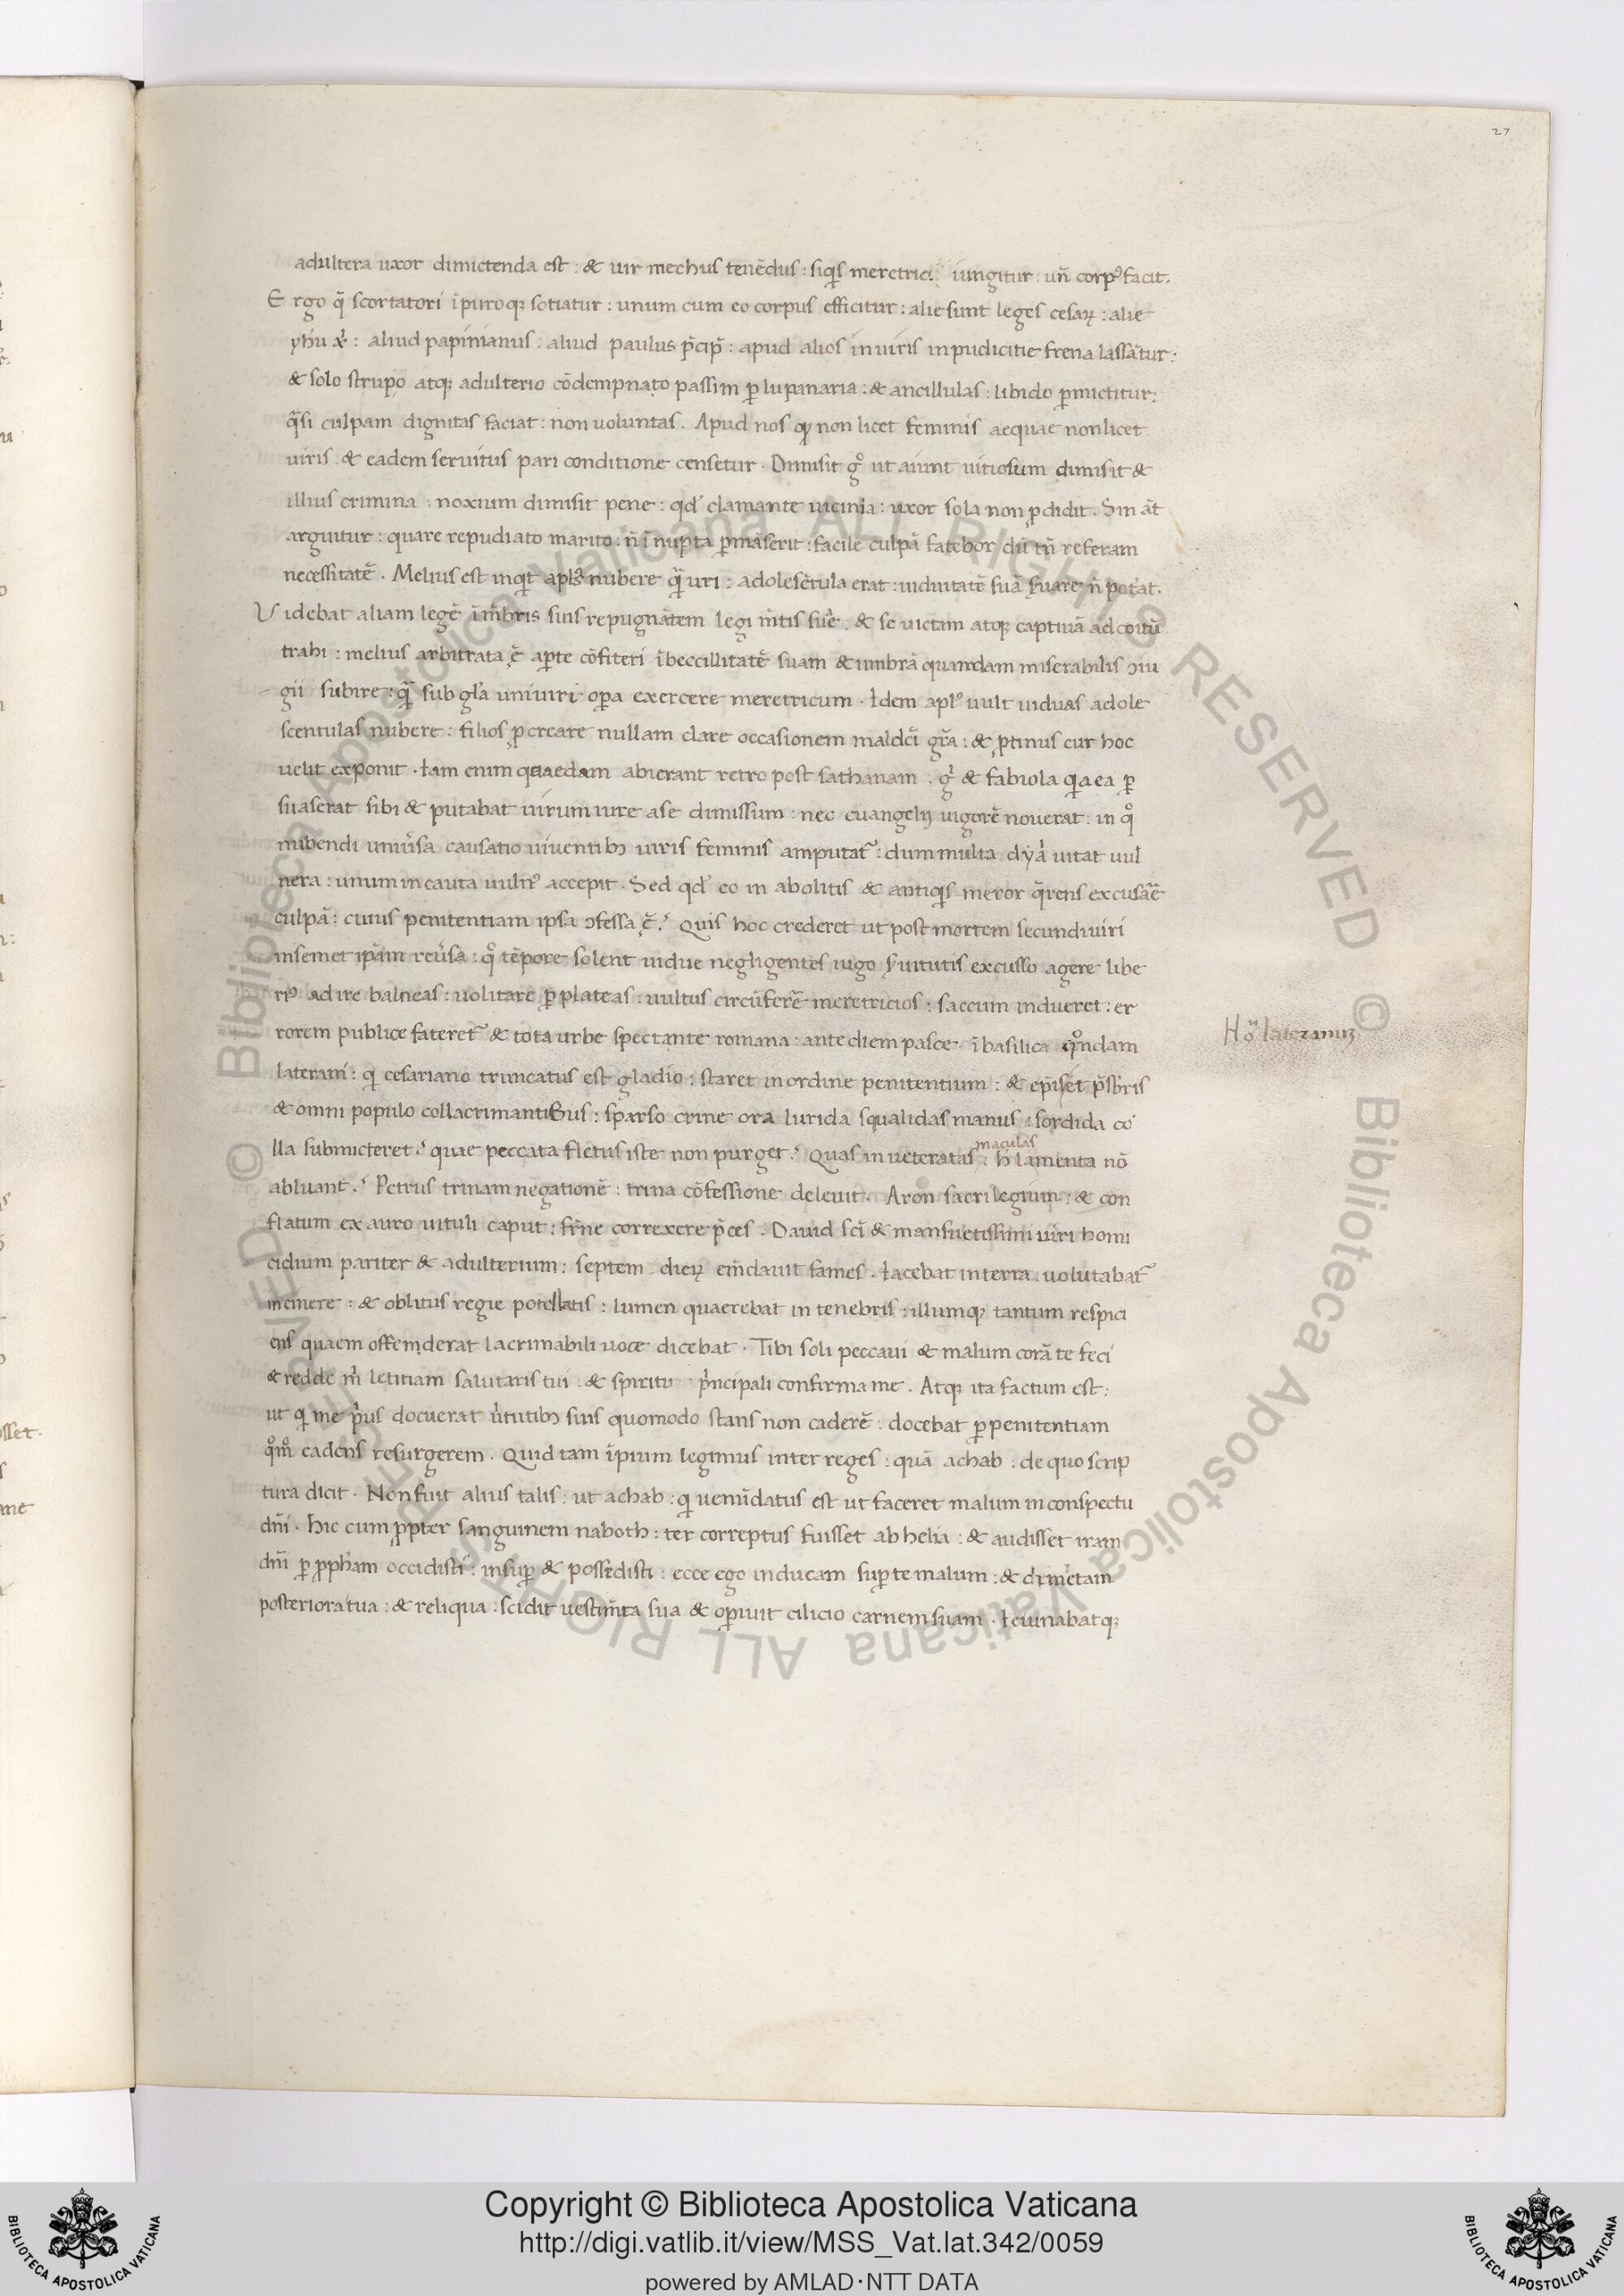 27
adultera uxor dimictenda est : & uir mechus tenēdus : siqͥs meretrici iungitur : un̄ corpꝰ facit.
Ergo q̄ scortatori īpuroqꝫ sotiatur : unum cum eo corpus efficitur : alie sunt leges cesaꝝ : alie
yh̄u xp̄i : aliud papinianus : aliud paulus p̄cip̄ : apud alios in uiris inpudicitie frena lassāt̄ur :
& solo strupo atqꝫ adulterio cōdempnato passim ꝑ lupanaria : & ancillulas : libido ꝑmictitur :
qͣsi culpam dignitas faciat : non uoluntas . Apud nos qͩ non licet feminis aequae non licet
uiris : & eadem seruitus pari conditione censetur . Dimisit gͦ ut aiunt uitiosum dimisit &
illius crimina : noxium dimisit pene : qd̓ clamante uicinia : uxor sola non ꝓdidit . Sin āt
arguitur : quare repudiato marito : n̄ īnupta ꝑmāserit : facile culpā fatebor dū tn̄ referam
necessitatē . Melius est inqͥt apl̄s nubere qͣ̄ uri : adolescētula erat : uiduitatē suā s̓uare n̄ potat .
Videbat aliam legē īm̄bris suis repugnātem legi m̄tis sue . & se uictam atqꝫ captiuā ad coitū
trahi : melius arbitrata ē aꝑte cōfiteri ībeccillitatē suam & umbrā quamdam miserabilis ꝯiu
gii subire : qͣ̄ sub gl̄a uniuiri oꝑa exercere meretricum . Idem apl̄s uult uiduas adole
scentulas nubere : filios ꝓcreare nullam dare occasionem maldc̄i gr̄a : & ꝓtinus cur hoc
uelit exponit . Iam enim quaedam abierant retro post sathanam . gͥ & fabiola qͥa ea ꝑ
suaserat sibi & putabat uirum iure a se dimissum : nec euangelij uigorē nouerat : in qͦ
nubendi uniu̓sa causatio uiuentibꝫ uiris feminis amputat̄ : dum multa dyaͥ uitat uul
nera : unum incauta uulnꝰ accepit . Sed qd̓ eo in abolitis & antiqͥs meror q̄rens excusār̄e
culpā : cuius penitentiam ipsa ꝯfessa ē ? Quis hoc crederet ut post mortem secundi uiri
insemet ip̄am reu̓sa : qͦ tēpore solent uidue negligentes iugo s̓uitutis excusso agere libe
riꝰ adire balneas : uolitare ꝑ plateas : uultus circūferē meretricios : saccum indueret : er
rorem publice fateret̄ & tota urbe spectante romana : ante diem pasce ī basilica qͦndam
laterani : qͥ cesariano truncatus est gladio : staret in ordine penitentium : & ep̄iset p̄sbr̄is
& omni populo collacrimantibus : sparso crine ora lurida squalidas manus : sordida co
lla submicteret ? quae peccata fletus iste non purget ? Quas inueteratas maculas : h̄ lamenta nō
abluant ? Petrus trinam negationē : trina cōfessione deleuit . Aron sacrilegium : & con
flatum ex auro uituli caput : fr̄ne correxere p̄ces . Dauid sc̄i & mansuetissimi uiri homi
cidium pariter & adulterium : septem dieꝝ em̄dauit fames . Iacebat in terra : uolutabat̄
in cinere : & oblitus regie potestatis : lumen quaerebat in tenebris : illumqꝫ tantum respici
ens quaem offenderat lacrimabili uoce dicebat . Tibi soli peccaui & malum corā te feci
& redde mͥ letitiam salutaris tui : & spiritu pͥncipali confirma me . Atqꝫ ita factum est :
ut qͥ me pͥus docuerat u̓tutibꝫ suis quomodo stans non caderē : docebat ꝑ penitentiam
qͦmͦ cadens resurgerem . Quid tam īpium legimus inter reges : quā achab : de quo scrip
tura dicit . Non fuit alius talis : ut achab : qͥ uenūdatus est ut faceret malum in conspectu
dn̄i . Hic cum ꝓpter sanguinem naboth : ter correptus fuisset ab helia : & audisset iram
dn̄i ꝑ ꝓph̄am occidisti : insuꝑ & possedisti : ecce ego inducam suꝑ te malum : & demetam
posteriora tua : & reliqua : scidit uestim̄ta sua & oꝑuit cilicio carnem suam . Ieiunabatqꝫ
Copyright © Biblioteca Apostolica Vaticana
http://digi.vatlib.it/view/MSS_Vat.lat.342/0059
powered by AMLAD·NTT DATA
BIBLIOTECA APOSTOLICA VATICANA
BIBLIOTECA APOSTOLICA VATICANA
© Biblioteca Apostolica Vaticana ALL RIGHTS RESERVED © Biblioteca Apostolica Vaticana ALL RIGHTS RESERVED